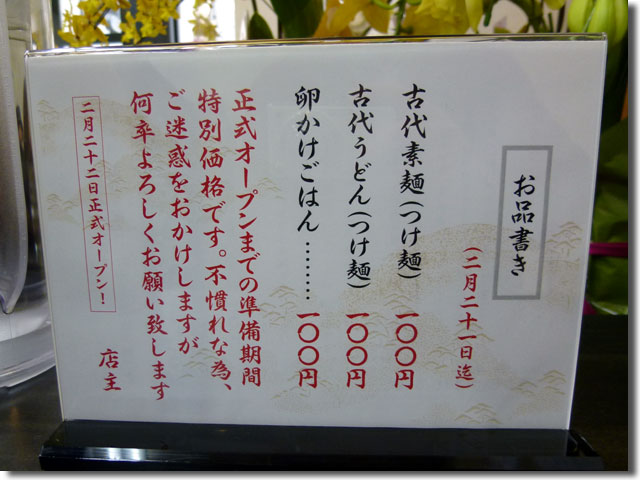 お品書き
（二月二十一日迄）
古代素麺（つけ麺） 一〇〇円
古代うどん（つけ麺） 一〇〇円
卵かけごはん……… 一〇〇円
正式オープンまでの準備期間
特別価格です。不慣れな為、
ご迷惑をおかけしますが
何卒よろしくお願い致します
店主
二月二十二日正式オープン！